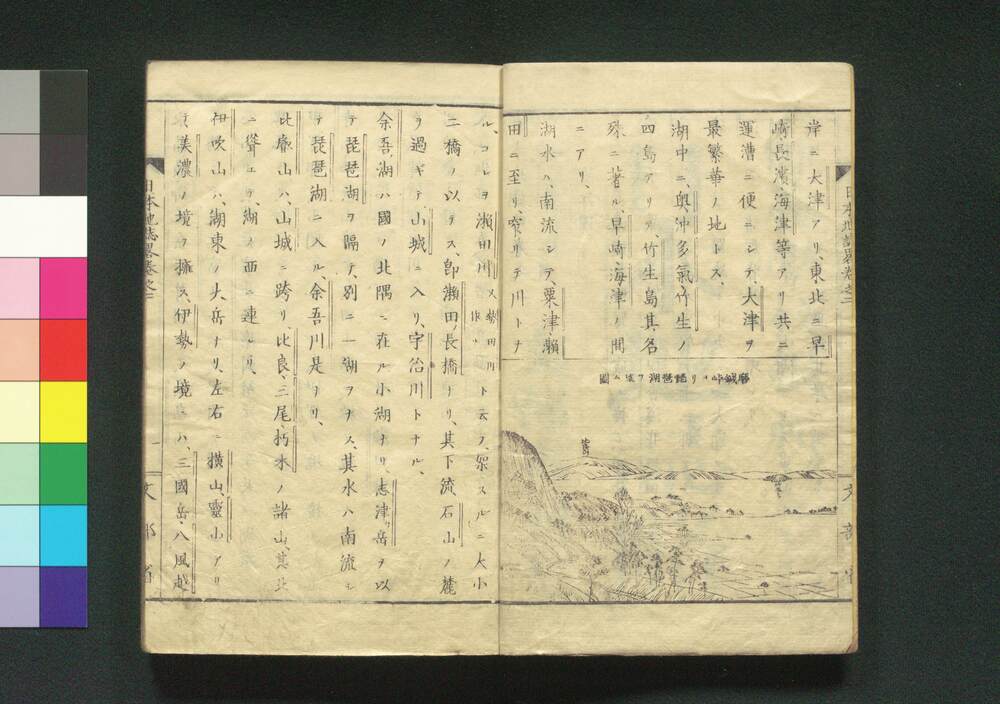 岸ニ大津アリ、東北ニ早
崎、長濱、海津等アリ共ニ
運漕ニ便ニシテ大津ヲ
最繁華ノ地トス、
湖中ニ、奥沖、多氣、竹生ノ
四島アリテ、竹生島其名
殊ニ著ル、早崎、海津ノ間
ニアリ、
湖水ハ、南流シテ、粟津、瀬
田ニ至リ、窄リテ川トナ
磨鍼峠ヨリ琵琶湖ヲ望ム圖
日本地誌略卷之二
文部省
ル、コレヲ瀬田川又勢田川作ルト云フ、架スルニ大小
二橋ノ以テス、卽瀬田ノ長橋ナリ、其下流、石山ノ麓
ヲ過ギテ、山城ニ入リ、宇治川トナル、
余吾湖ハ國ノ北隅ニ在ル小湖ナリ、志津ヶ岳ヲ以
テ琵琶湖ヲ隔テ、別ニ一湖ヲナス、其水ハ南流シ
テ琵琶湖ニ入ル、余吾川是ナリ、
比叡山ハ、山城ニ跨リ、比良、三尾、朽木ノ諸山、其北
ニ聳エテ、湖ノ西ニ連レリ、
伊吹山ハ、湖東ノ大岳ナリ、左右ニ横山、靈山アリ
テ美濃ノ境ヲ擁ス、伊勢ノ境ニハ、三國岳、八風越
日本地誌略卷之二
文部省